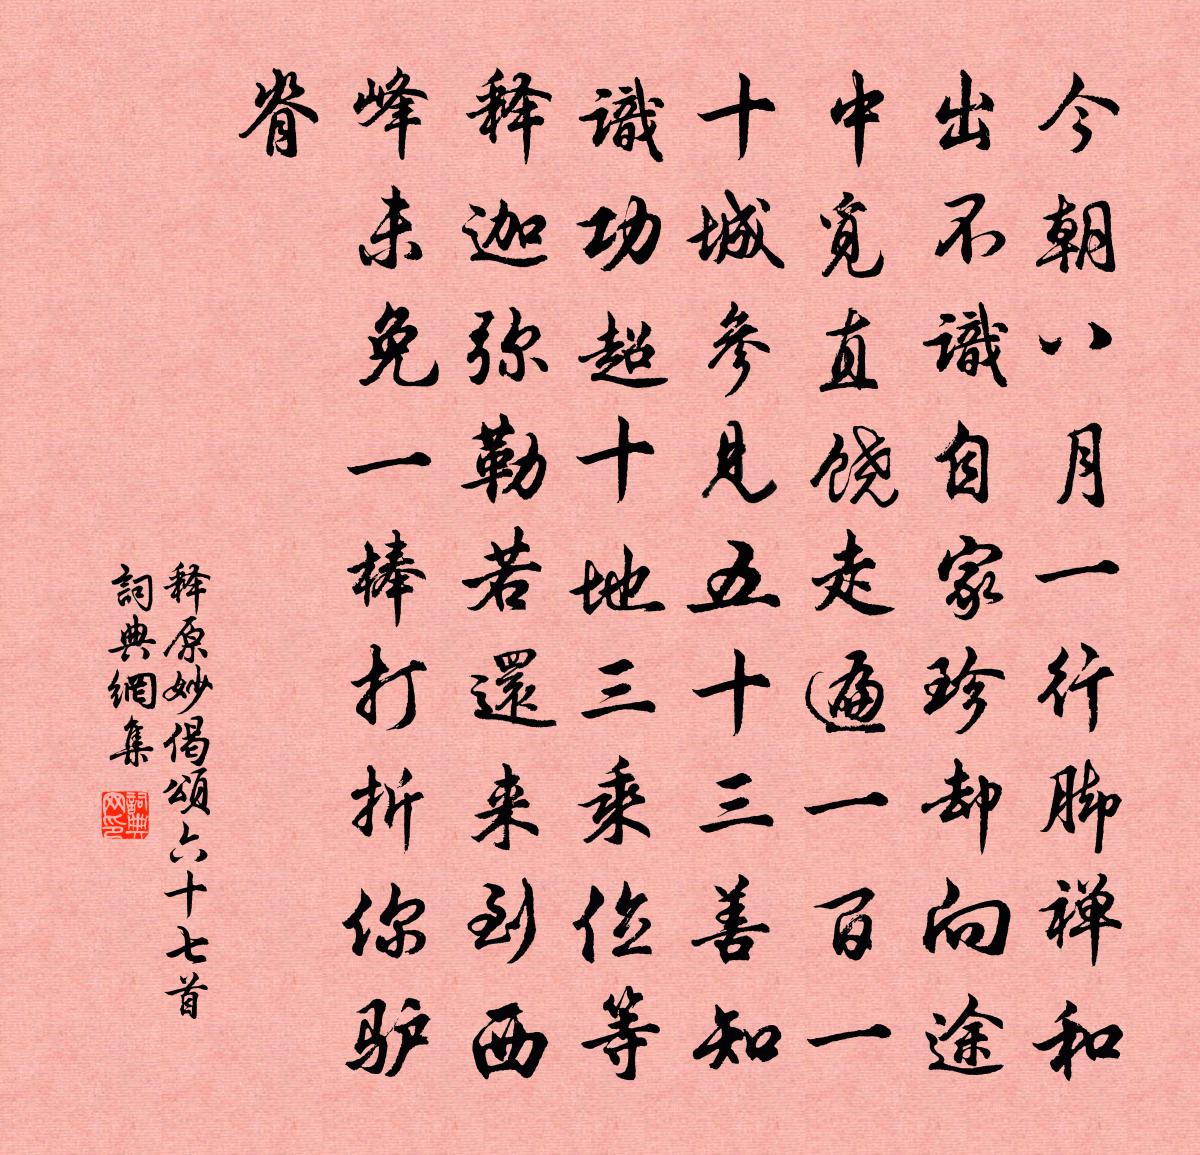 今朝八月一行脚禅和
出不識自家珍却向途
中覓直饶走遍一百一
十城参見五十三善知
識功超十地三乘位等
释迦弥勒若還来到西
峰未免一棒打折你驴
脊
释原妙偈頌六十七首
詞典網集
詞典网印